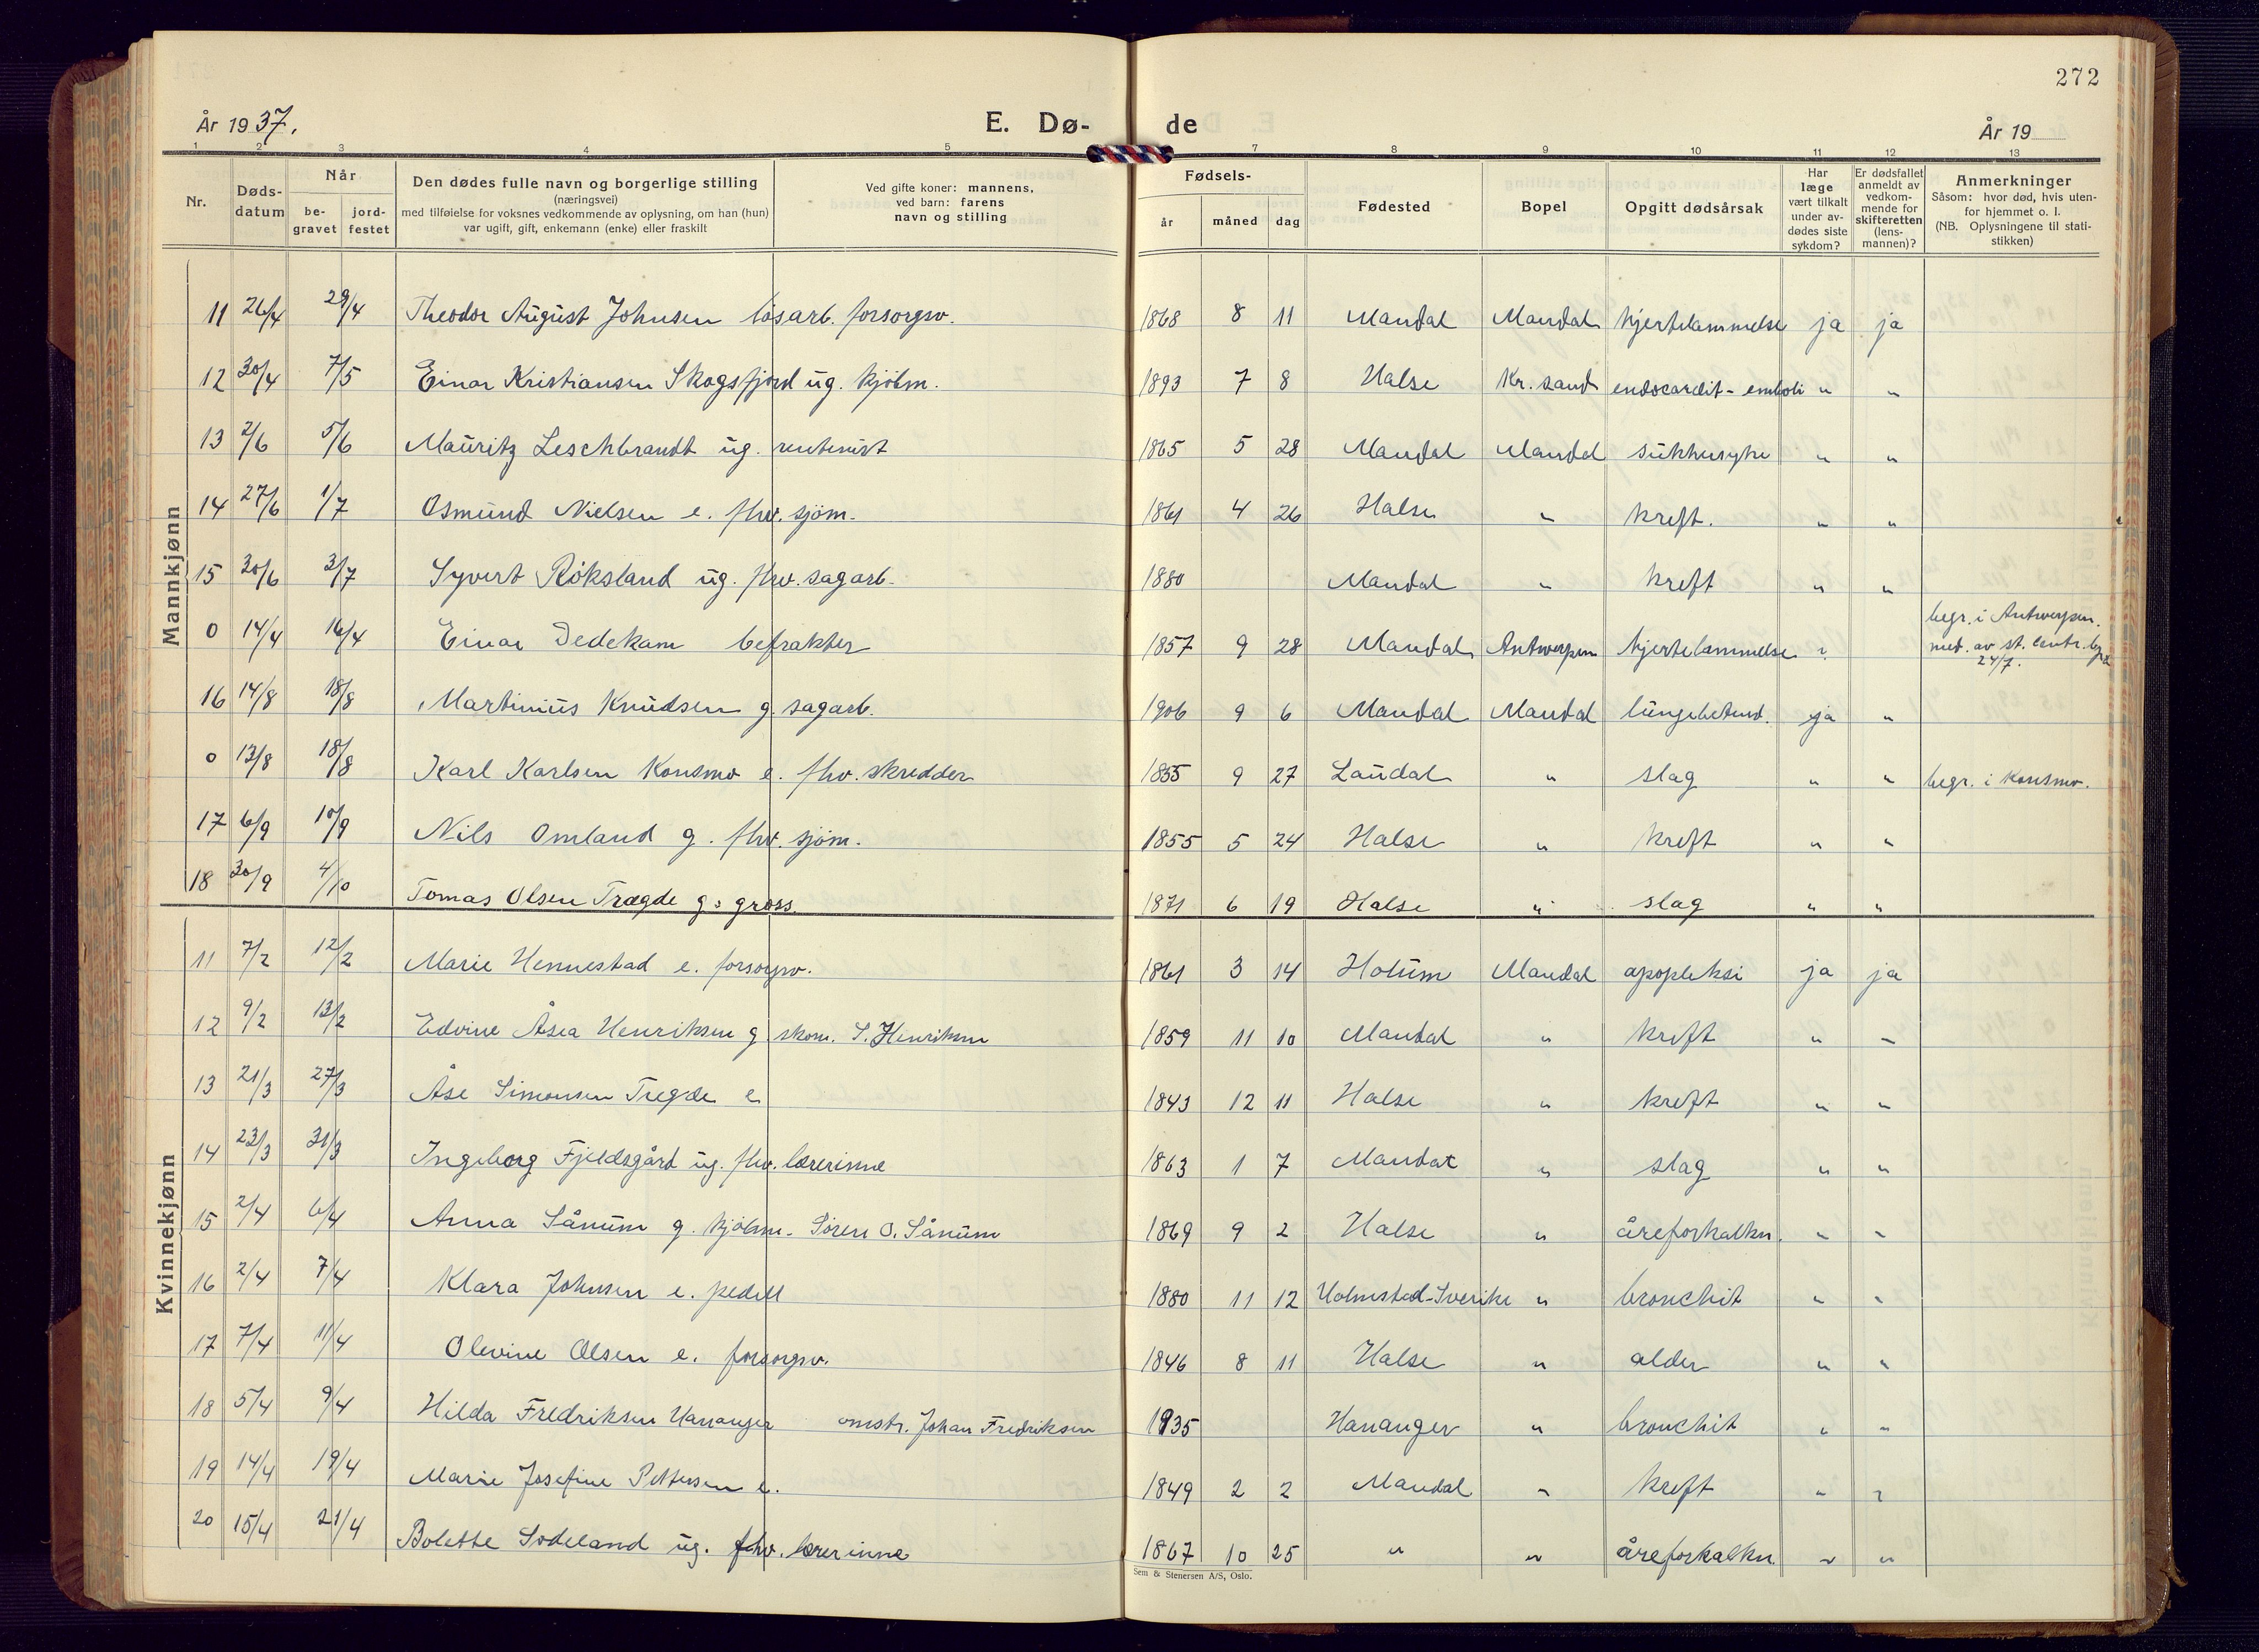 272
År 1937.
E. Dø-
de
År 19
1 2 3 4 5 7 8 9 10 11 12 13
Nr.
Døds-
datum
Når
be-
gravet
jord-
festet
Den dødes fulle navn og borgerlige stilling
(næringsvei)
med tilføielse for voksnes vedkommende av oplysning, om han (hun)
var ugift, gift, enkemann (enke) eller fraskilt
Ved gifte koner: mannens,
ved barn: farens
navn og stilling
Fødsels-
år måned dag
Fødested
Bopel
Opgitt dødsårsak
Har
læge
vært tilkalt
under av-
dødes siste
sykdom?
Er dødsfallet
anmeldt av
vedkom-
mende for
skifteretten
(lens-
mannen)?
Anmerkninger
Såsom: hvor død, hvis uten-
for hjemmet o. l.
(NB. Oplysningene til stati-
stikken)
Mannkjønn
11 26/4 29/4 Theodor August Johnsen løsarb. forsorgsv. 1868 8 11 Mandal Mandal hjertelammelse ja ja
12 30/4 7/5 Einar Kristiansen Skogsfjord ug. kjøbm. 1893 7 8 Halse Kr.sand endocardit - emboli " "
13 2/6 5/6 Mauritz Leschbrandt ug. rentenist 1865 5 28 Mandal Mandal sukkersyke " "
14 27/6 1/7 Osmund Nielsen e. fhv. sjøm. 1861 4 26 Halse " kreft. " "
15 30/6 3/7 Syvert Røksland ug. fhv. sagarb. 1880 Mandal " kreft " "
0 14/4 16/4 Einar Dedekam befrakter 1857 9 28 Mandal Antwerpen hjertelammelse ? begr. i Antwerpen.
med. av st. centr. byr
24/7.
16 14/8 18/8 Martinius Knudsen g. sagarb. 1906 9 6 Mandal Mandal lungebetend. ja "
0 13/8 18/8 Karl Karlsen Konsmo e. fhv. skredder 1855 9 27 Laudal " slag " " begr. i Konsmo.
17 6/9 10/9 Nils Omland g. fhv. sjøm. 1855 5 24 Halse " kreft " "
18 30/9 4/10 Tomas Olsen Trægde g. gross. 1871 6 19 Halse " slag " "
Kvinnekjønn
11 7/2 12/2 Marie Hennestad e. forsorgsv. 1861 3 14 Holum Mandal apopleksi ja ja
12 9/2 13/2 Edvine Åsea Henriksen g skom. S. Henriksen 1859 11 10 Mandal " kreft " "
13 21/3 27/3 Åse Simonsen Tregde e. 1843 12 11 Halse " kreft " "
14 23/3 31/3 Ingeborg Fjeldsgård ug. fhv. lærerinne 1863 1 7 Mandal " slag " "
15 2/4 6/4 Anna Sånum g. kjøbm. Søren O. Sånum 1869 9 2 Halse " åreforkalkn. " "
16 2/4 7/4 Klara Johnsen e. pedell 1880 11 12 Halmstad-Sverike " bronchit " "
17 7/4 11/4 Olevine Olsen e. forsorgsv. 1846 8 11 Halse " alder " "
18 5/4 9/4 Hilda Fredriksen Hananger omstr. Johan Fredriksen 1935 Hananger " bronchit " "
19 14/4 19/4 Marie Josefine Pettersen e. 1849 2 2 Mandal " kreft " "
20 15/4 21/4 Bolette Sodeland ug. fhv. lærerinne 1867 10 25 " " åreforkalkn. " "
Sem & Stenersen A/S, Oslo.